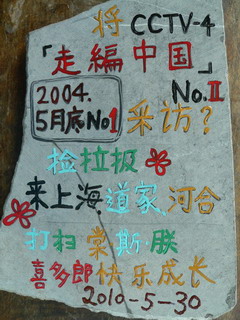 将 CCTV-4
「走編中国」
2004. No.Ⅱ
5月底No1 采访?
捡拉扱
来上海道家河合
打扫常斯·朕
喜多郎快乐成长
2010-5-30